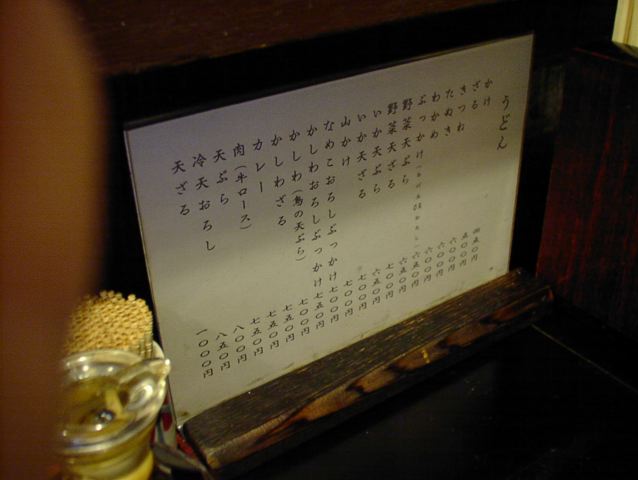 うどん
かけ 四五〇円
ざる 五〇〇円
きつね 六〇〇円
たぬき 六〇〇円
わかめ 六〇〇円
ぶっかけ 六五〇円
野菜天ぷら 六五〇円
野菜天ざる 七〇〇円
いか天ぷら 六五〇円
いか天ざる 七〇〇円
山かけ 七〇〇円
なめこおろしぶっかけ 七〇〇円
かしわおろしぶっかけ 七五〇円
かしわ(鳥の天ぷら) 七〇〇円
かしわざる 七五〇円
カレー 七五〇円
肉(牛ロース) 七五〇円
天ぷら 八〇〇円
冷天おろし 八五〇円
天ざる 一〇〇〇円